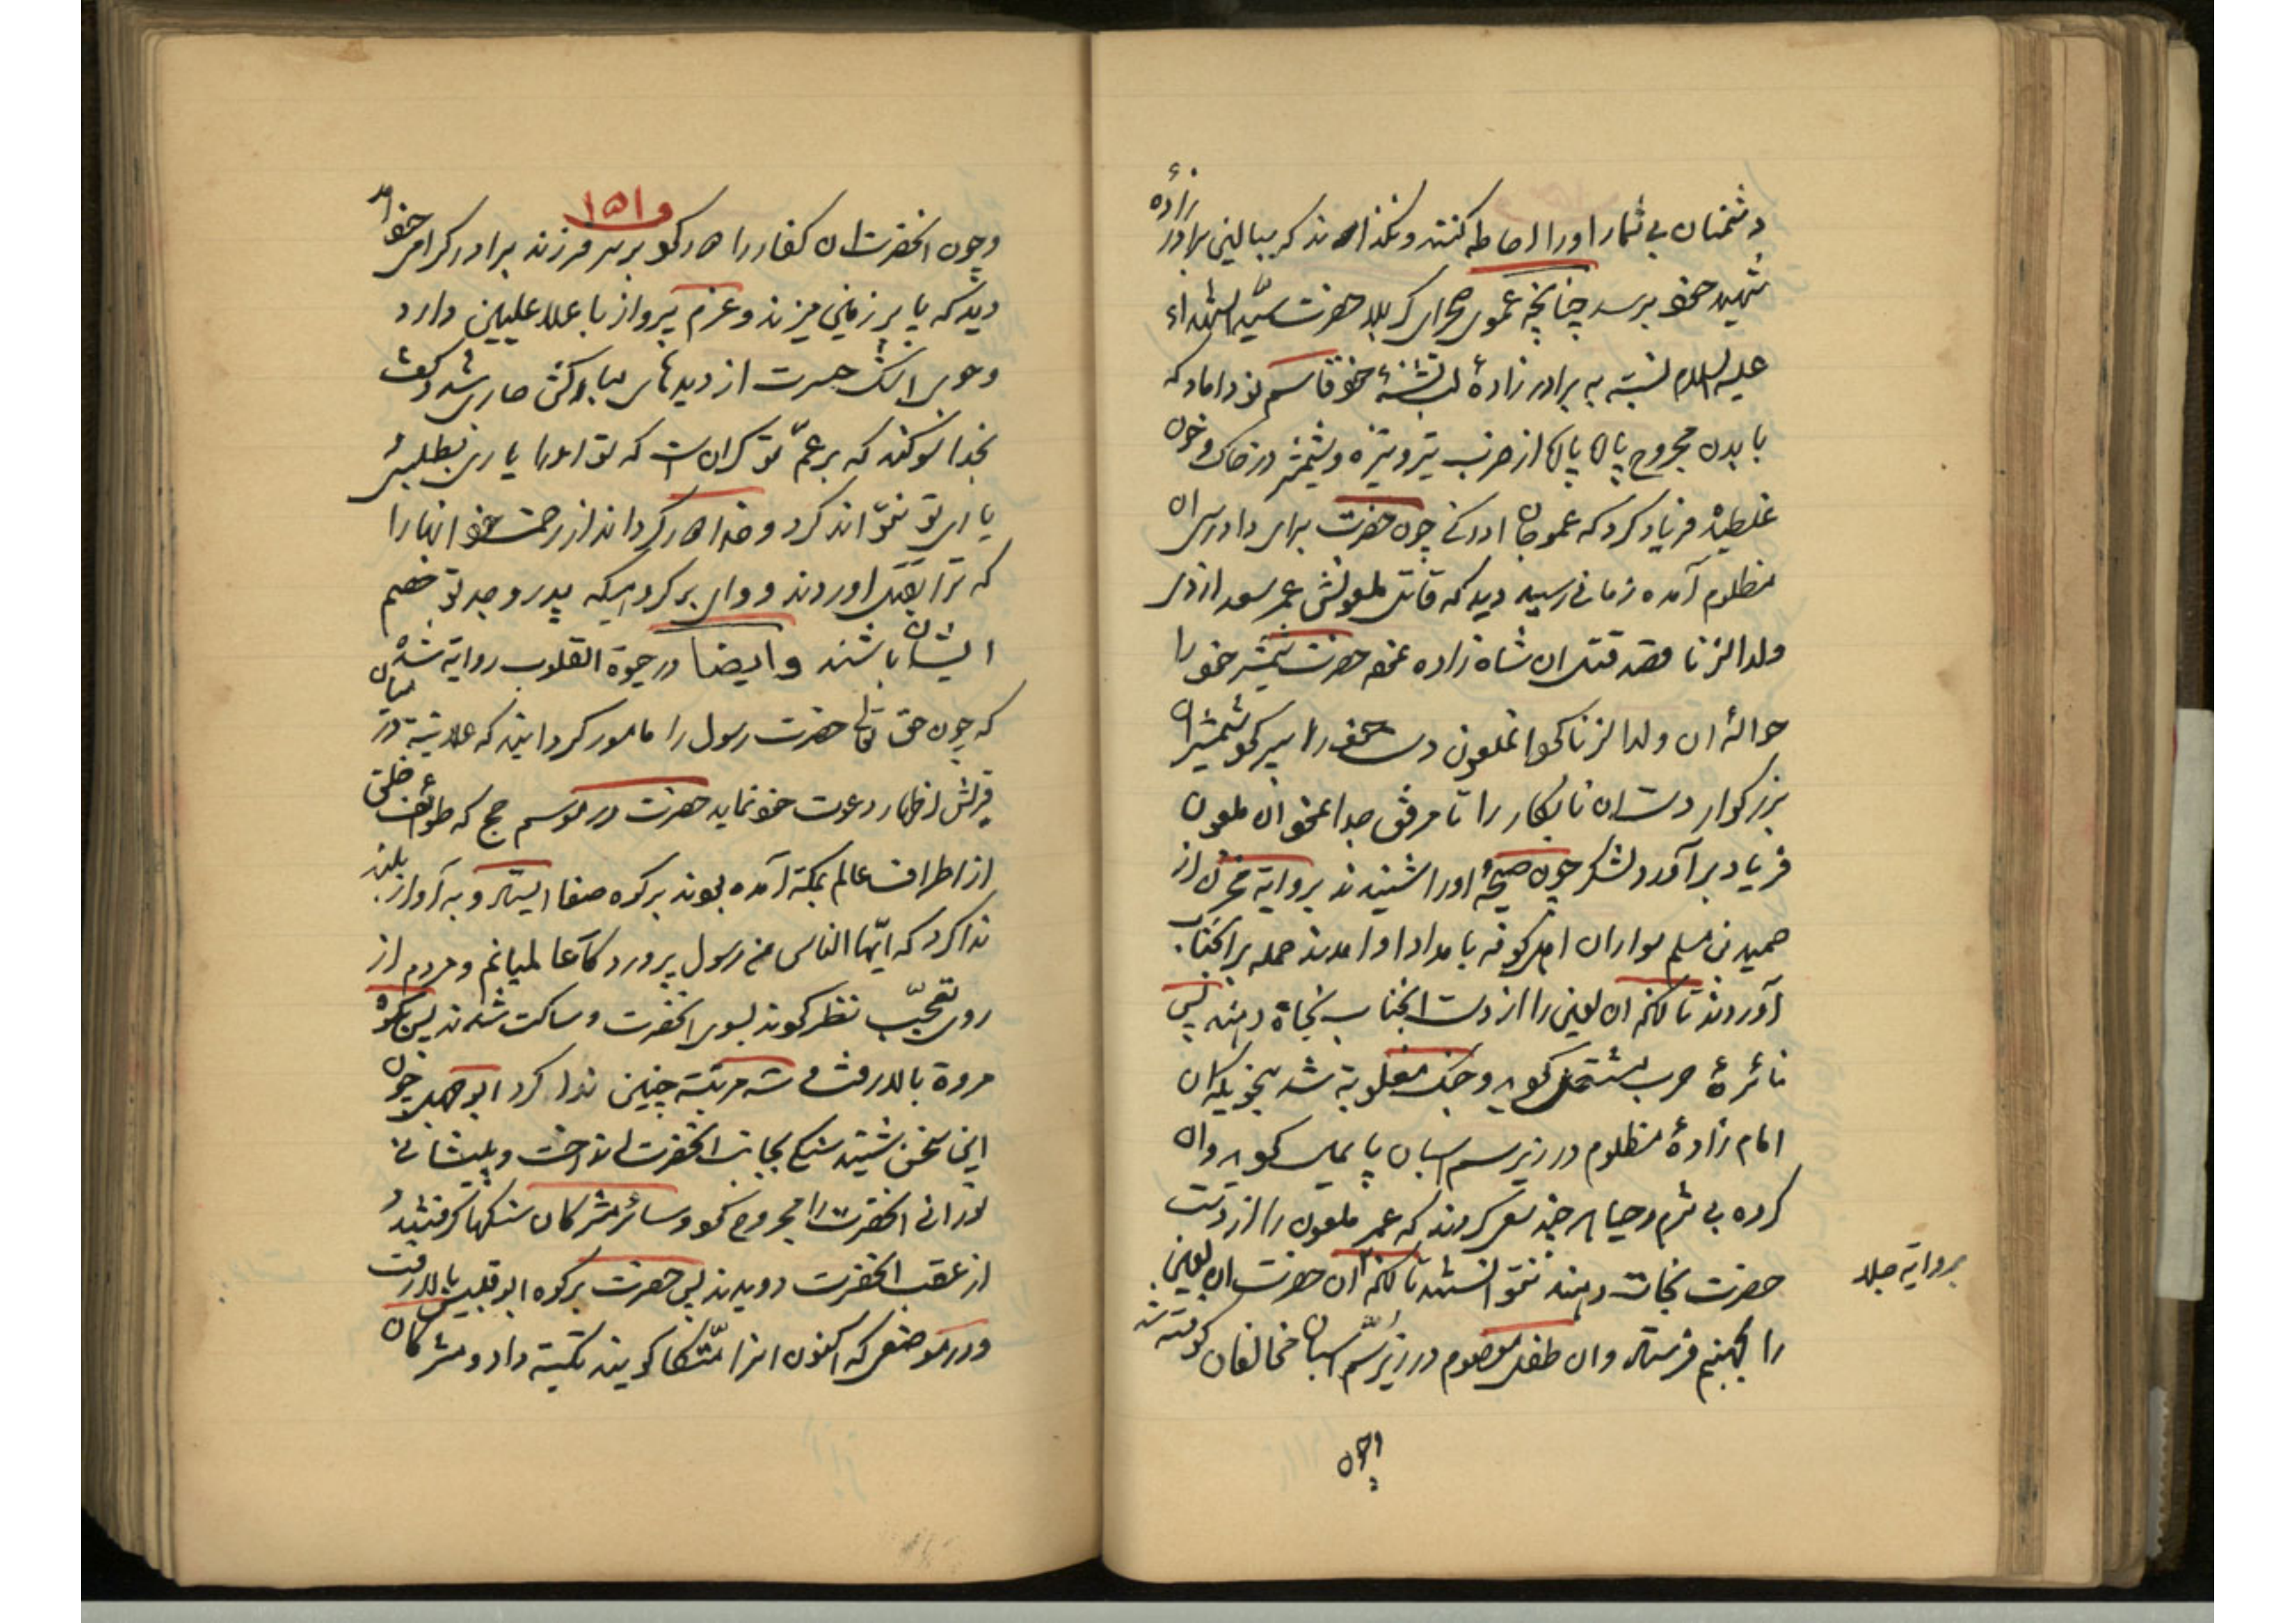 دشمنان بی شمار او را احاطه کنند و نگذارند که ببالین برادر زادهٔ
شهید خود برسد چنانچه عموی صحرای کربلا حضرت سیّد الشهداء
علیه السلام نسبت به برادر زادهٔ لب تشنهٔ خود قاسم نو داماد که
با بدن مجروح پاره پاره از ضرب تیر و نیزه و شمشیر در خاک و خون
غلطیده فریاد کرد که عمو جان ادرکنی چون حضرت برای دادرسی ان
مظلوم آمده زمانی رسید دید که قاتل ملعونش عمر سعد ازدی
ولد الزنا قصد قتل ان شاه زاده نموده حضرت شمشیر خود را
حوالهٔ ان ولد الزنا کرد انملعون دست خود را سپر کرد شمشیر ان
بزرگوار دست ان نابکار را تا مرفق جدا نمود ان ملعون
فریاد بر آورد لشکر چون صیحهٔ او را شنیدند بروایة مخزن از
حمید بن مسلم سواران اهل کوفه بامداد او امدند حمله بر انجناب
آوردند تا انکه ان لعین را از دست انجناب نجاة دهند پس
نائرهٔ حرب مشتعل گردید و جنک مغلوبة شد بنحویکه ان
امام زادهٔ مظلوم در زیر سم اسبان پایمال گردید و ان
کرده بی شرم و حیا هر چند سعی کردند که عمر ملعون را از دست
حضرت نجات دهند نتوانستند تا انکه ان حضرت ان لعین
را بجهنم فرستاد و ان طفل معصوم در زیر سم اسبان مخالفان کوفته شد
بروایة جلاء
وچون
۱۵۱
وچون انحضرت ان کفار را دور کرد بر سر فرزند برادر گرامی خود امد
دید که پا بر زمین میزند و عزم پرواز با علا علیین دارد
و جوی اشک حسرت از دیدهای مبارکش جاری شد و گفت
بخدا سوگند که بر عمّ تو گران است که تو او را یاری بطلبی و
یاری تو نتواند کرد و خدا دور گرداند از رحمت خود انها را
که ترا بقتل اوردند و وای بر گروهیکه پدر و جد تو خصم
ایشان باشند و ایضا در حیوة القلوب روایة شده
که چون حق تعالی حضرت رسول را مامور گردانید که علانیة در میان
قریش اظهار دعوت خود نماید حضرت در موسم حج که طوائف خلق
از اطراف عالم بمکة آمده بودند بر کوه صفا ایستاد و به آواز بلند
ندا کرد که ایّها الناس من رسول پروردگار عالمیانم و مردم از
روی تعجّب نظر کردند بسوی انحضرت و ساکت شدند پس بکوه
مروة بالا رفت و سه مرتبة چنین ندا کرد ابو جهل چون
این سخن شنید سنگی بجانب انحضرت انداخت و پیشانی
نورانی انحضرت را مجروح کرد و سائر مشرکان سنگها گرفتند و
از عقب انحضرت دویدند پس حضرت بر کوه ابو قبیس بالا رفت
و در موضعی که اکنون انرا متّکا گویند تکیة داد و مشرکان